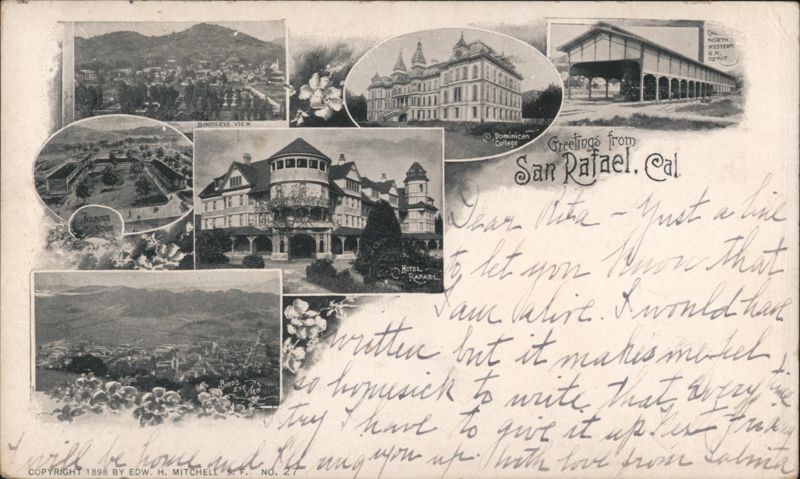 BIRDSEYE VIEW
© Dominican College
CAL. NORTH WESTERN R.R. DEPOT
Greetings from
San Rafael, Cal.
HITCHCOCK SCHOOL
HOTEL RAFAEL
BIRDS EYE VIEW
Dear Rita - Just a line
to let you know that
I am alive. I would have
written but it makes me feel
so homesick to write that every time
I try I have to give it up. Friday
I will be home and ring you up. With love from
COPYRIGHT 1898 BY EDW. H. MITCHELL S. F. NO. 27